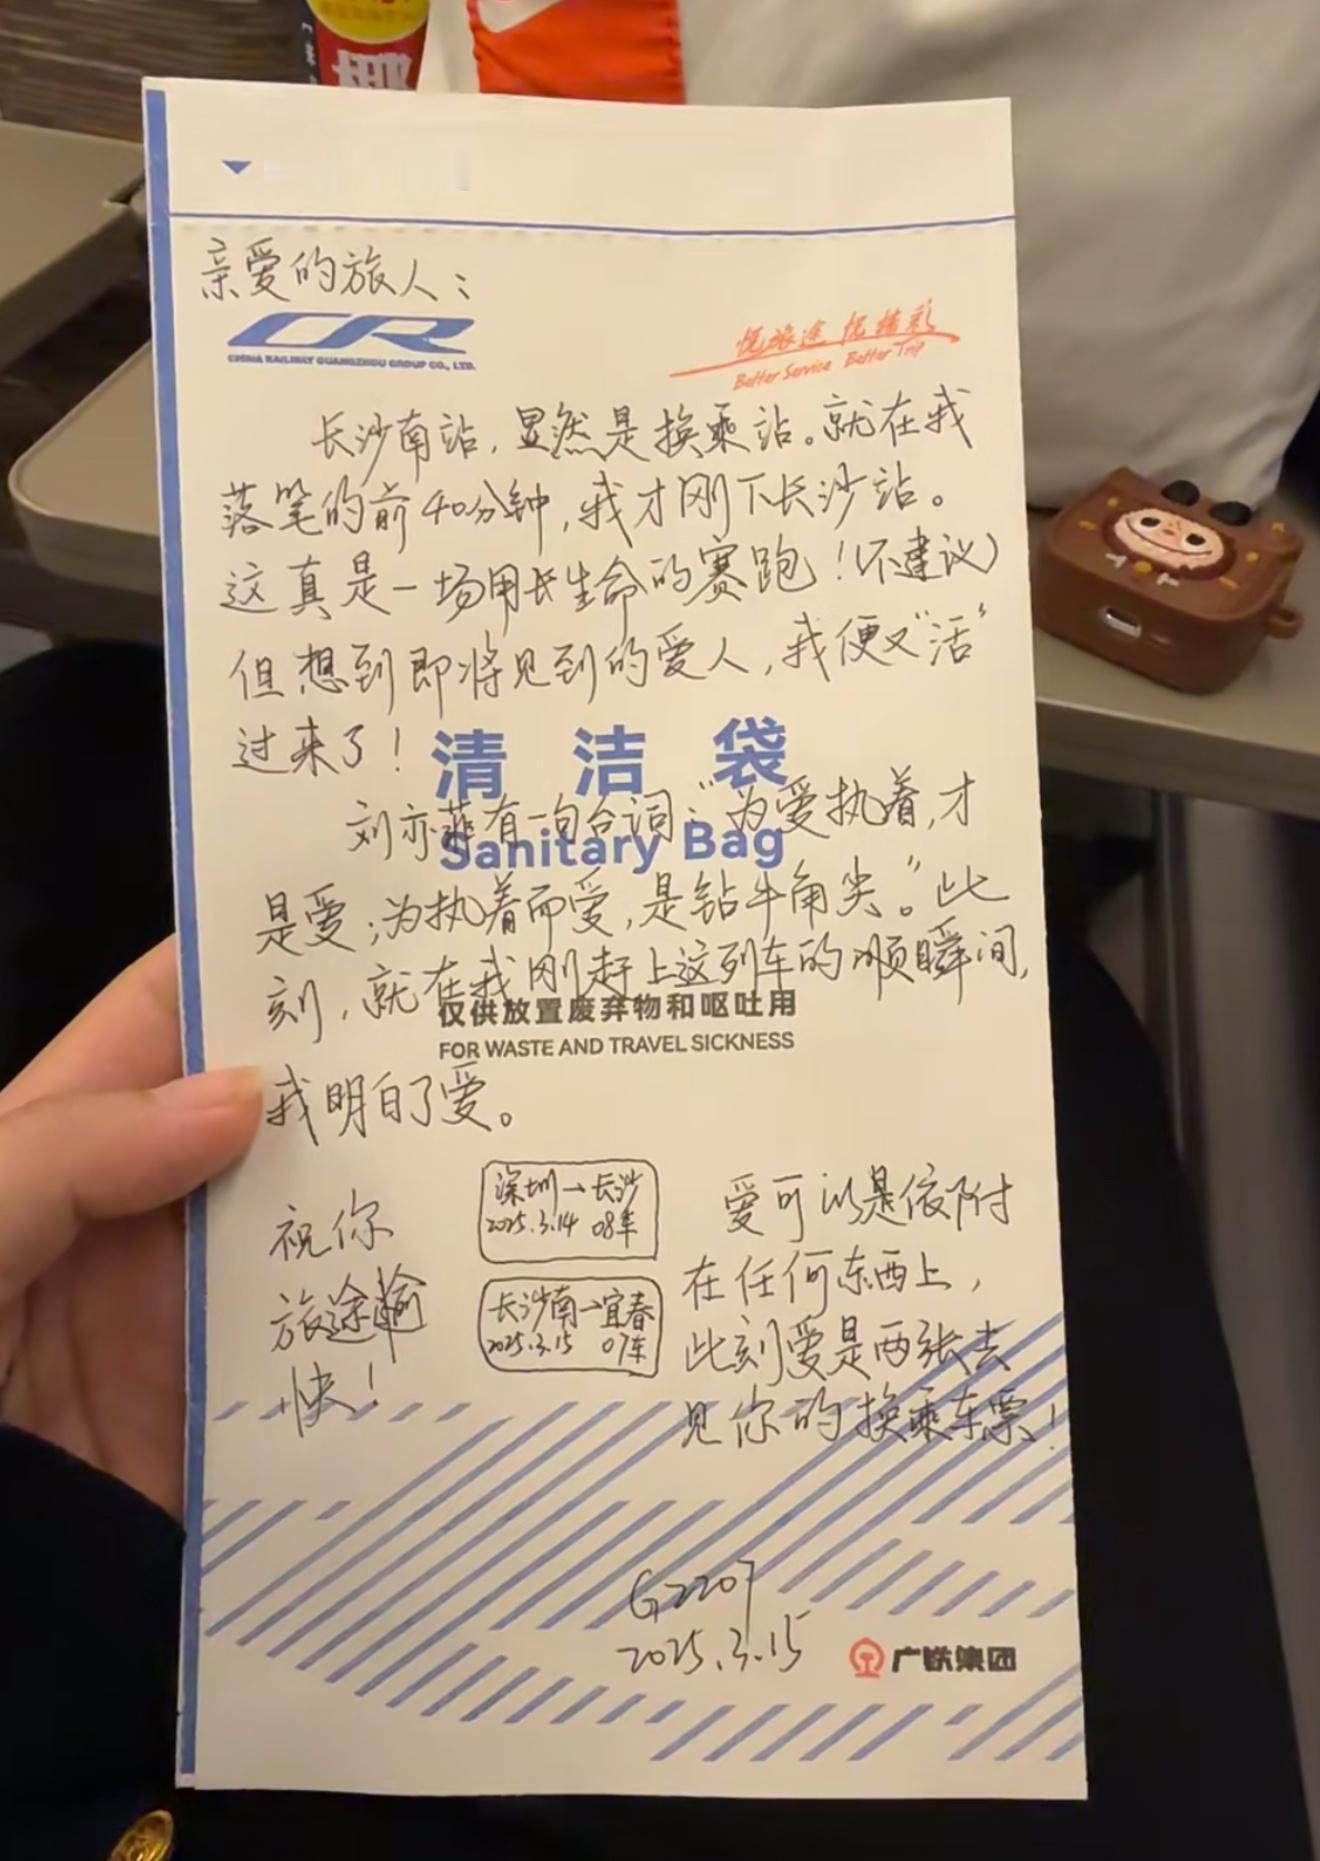 亲爱的旅人：
CR
CHINA RAILWAY GUANGZHOU GROUP CO., LTD.
悦旅途 悦精彩
Better Service Better Trip
长沙南站，显然是换乘站。就在我
落笔的前40分钟，我才刚下长沙站。
这真是一场用长生命的赛跑！（不建议）
但想到即将见到的爱人，我便又“活”
过来了！
清洁袋
Sanitary Bag
刘亦菲有一句台词：“为爱执着，才
是爱；为执着而爱，是钻牛角尖。”此
刻，就在我刚赶上这列车的顺瞬间，
仅供放置废弃物和呕吐用
FOR WASTE AND TRAVEL SICKNESS
我明白了爱。
祝你
旅途愉
快！
深圳→长沙
2025.3.14 08车
长沙南→宜春
2025.3.15 07车
爱可以是依附
在任何东西上，
此刻爱是两张去
见你的换乘车票！
G2207
2025.3.15
广铁集团